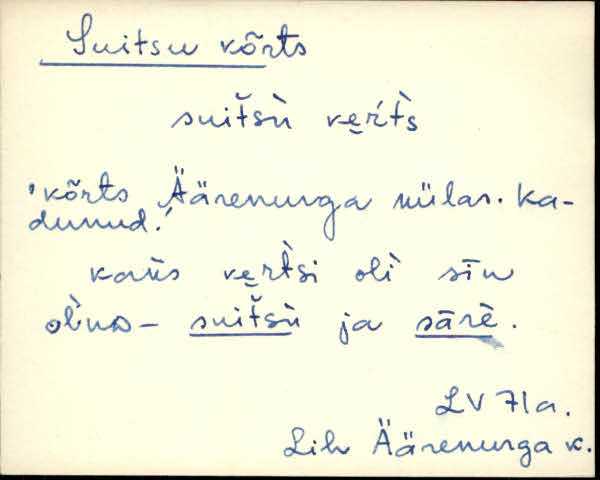 Suitsu kõrts
suitsù ve̮rt̀s
'kõrts Äärenurga külas. Ka-
dunud.'
kaks ve̮rt̀si olì sīn
olnu – suitsù ja sārè.
LV 71a.
Lih Äärenurga k.